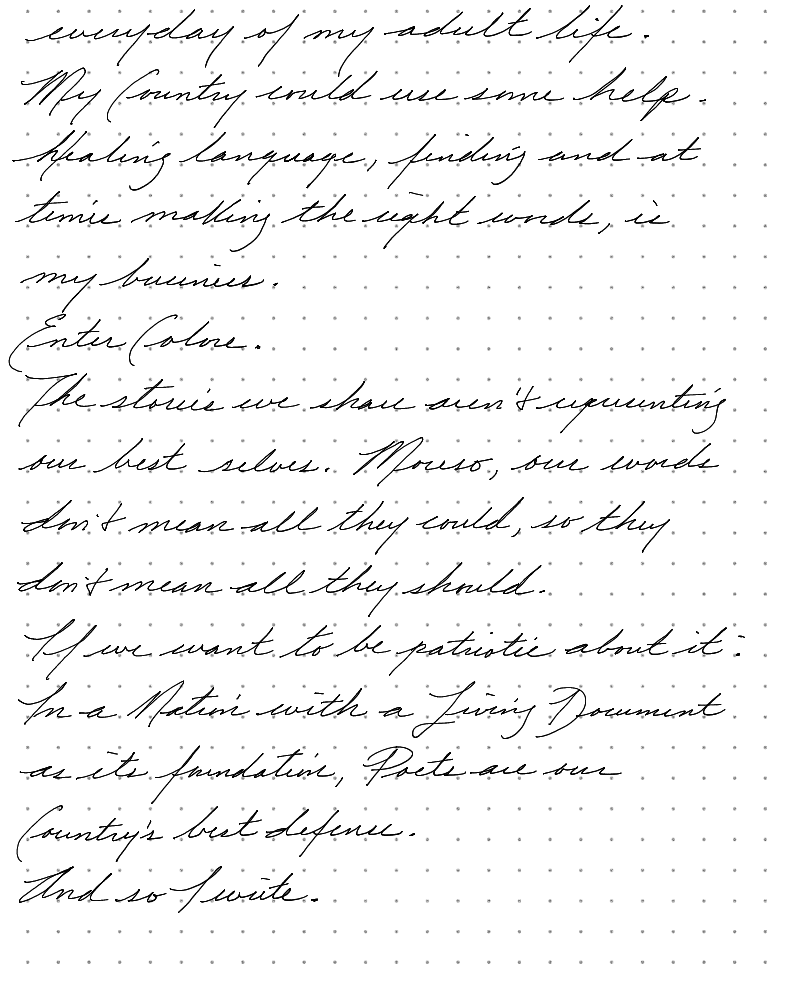 everyday of my adult life.
My Country could use some help.
Healing language, finding and at
times making the right words, is
my business.
Enter Colore.
The stories we share aren't representing
our best selves. Moreso, our words
don't mean all they could, so they
don't mean all they should.
If we want to be patriotic about it:
In a Nation with a Living Document
as its foundation, Poets are our
Country's best defense.
And so I write.